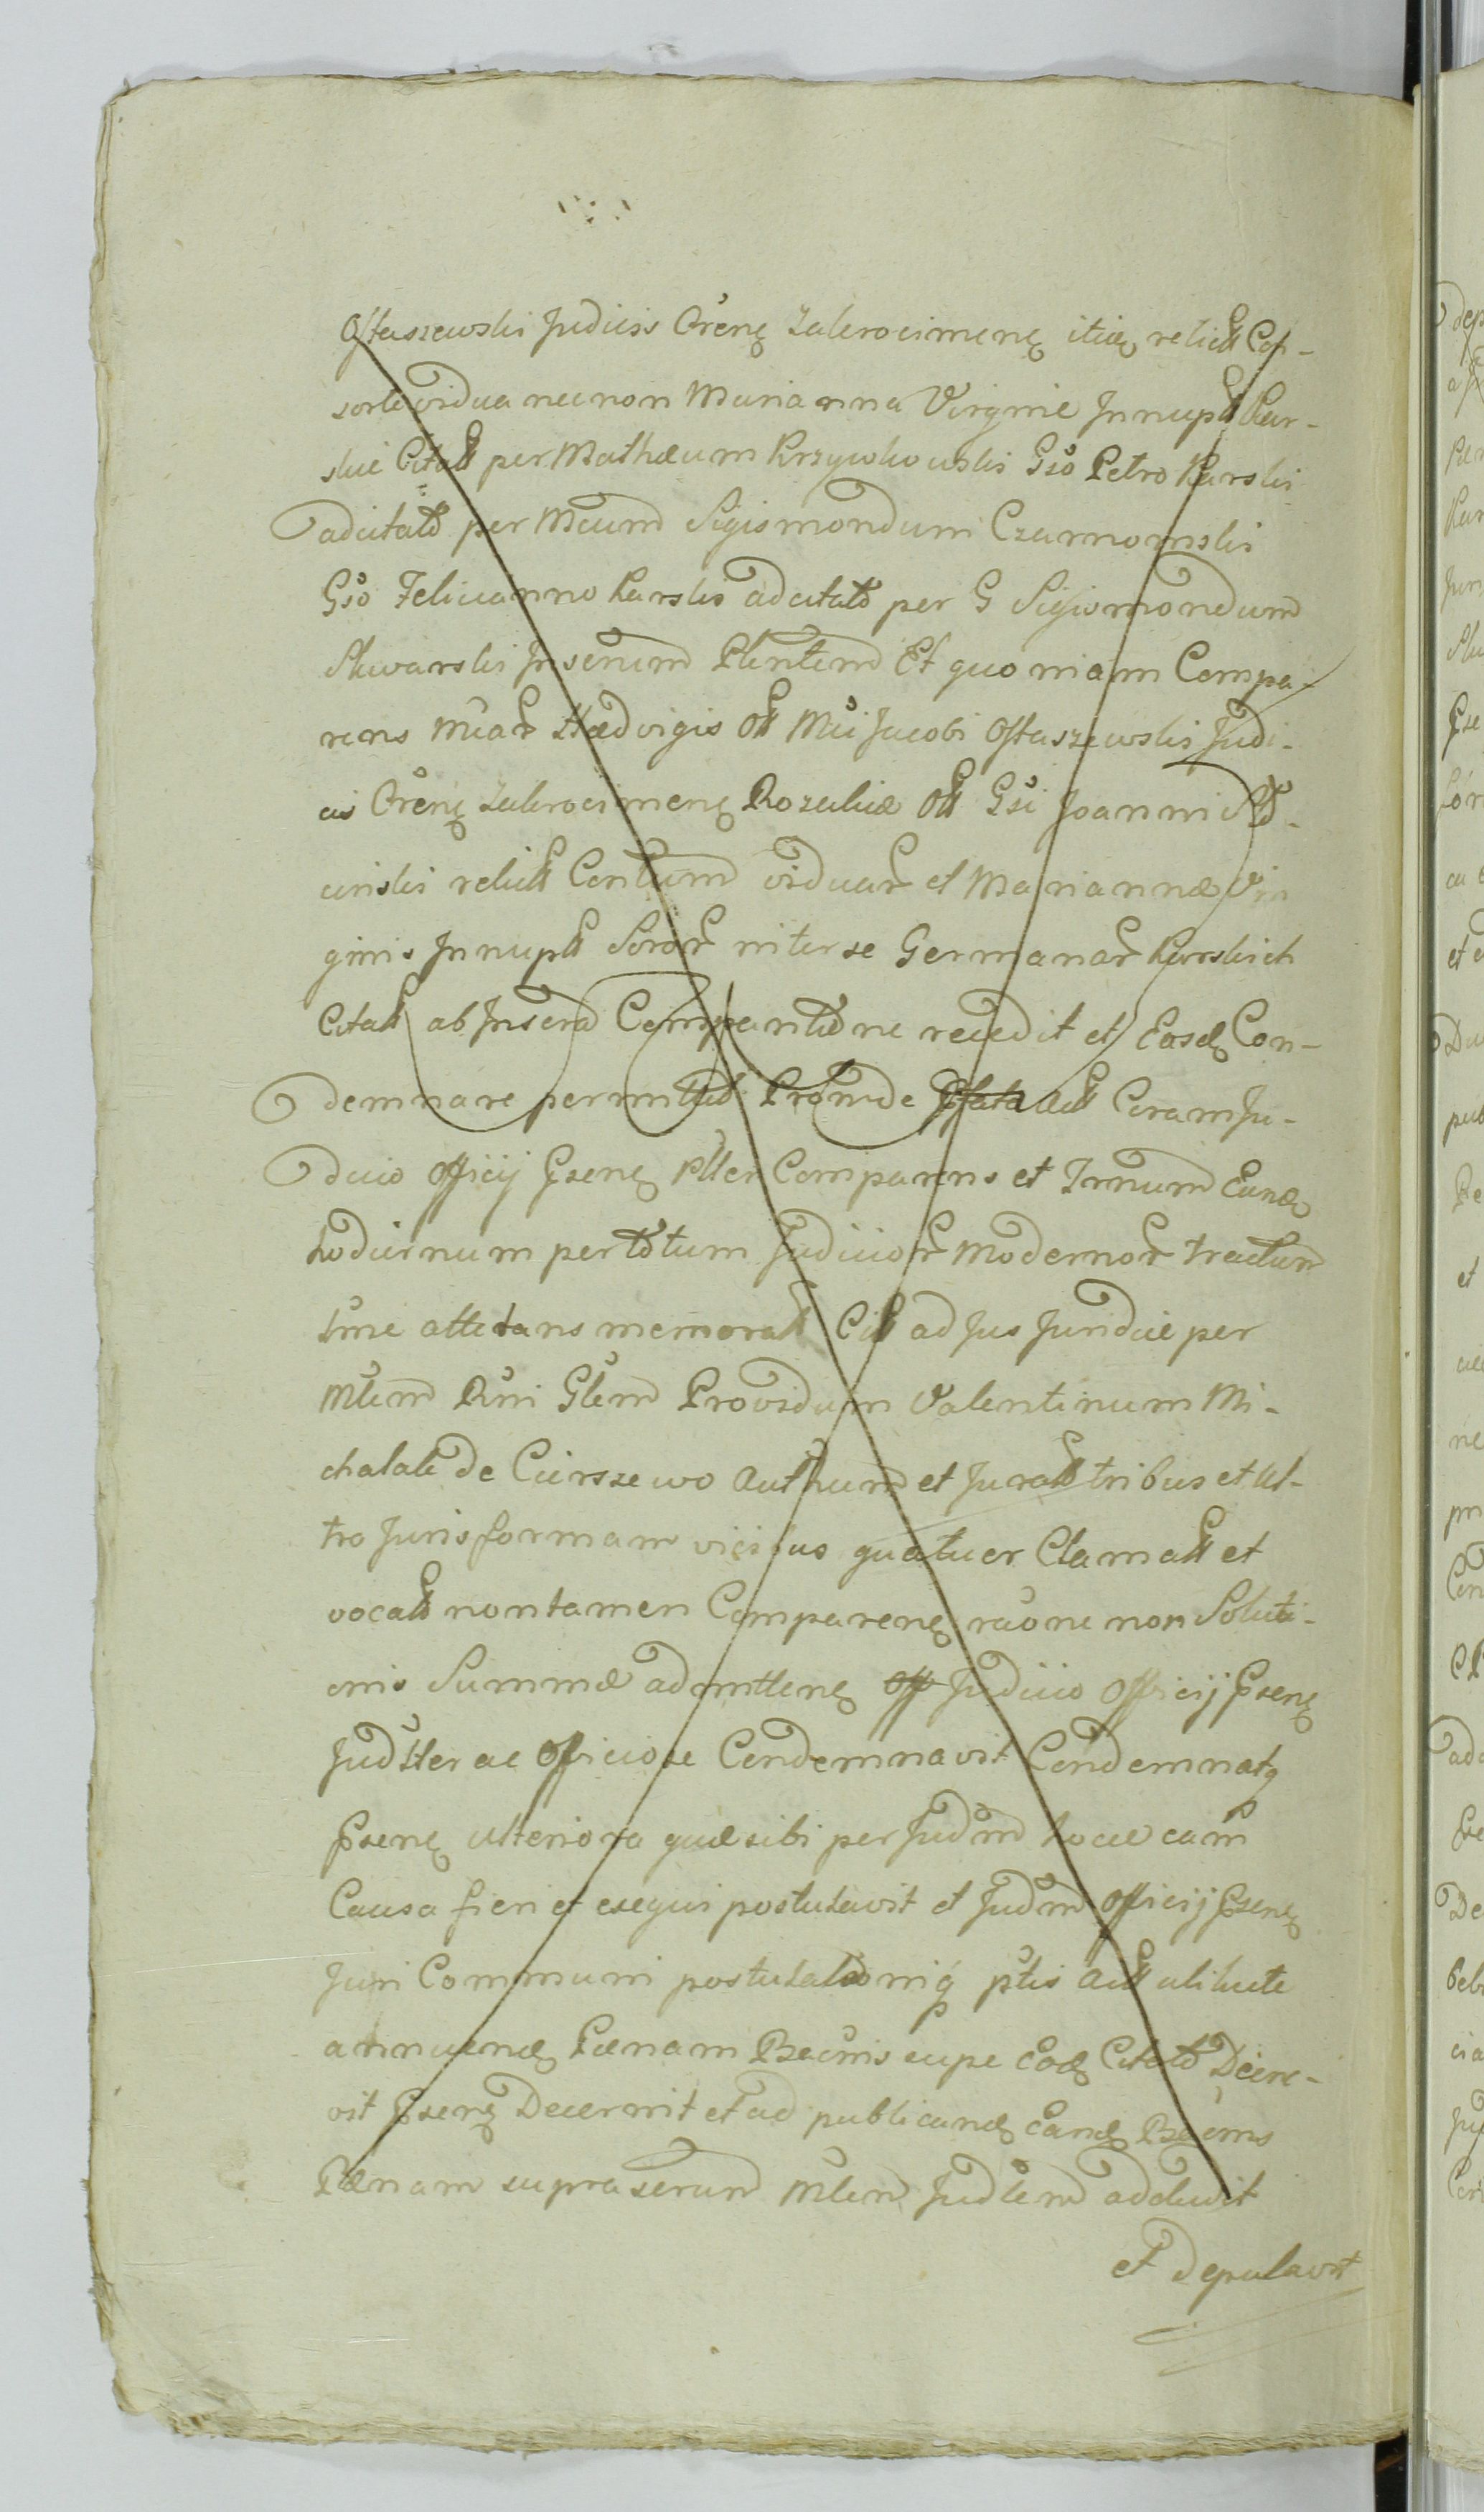 Ostaszewski Judicis Orenę Zakrocimenę itidę relictt Con-
sorte vidua necnon Marianna Virgine Innuptt Kar-
skie Citatt per Mathæum Krzywkowski Gso Petro Karski
adcitato per Mcum Sigismondum Czarnomski
Gso Felicianno Karski adcitato per G Sigismondum
Skwarski Inserum Plentem Et quoniam Compa-
rens Mcar Hædvigis Ott Mci Jacobi Ostaszewski Judi-
cis Orenę Zakrocimenę Rozaliæ Ott Gsi Joanni
relictt Contum viduar et Mariannæ Vir
ginis Innuptt Soror inter se Germanar Karskich
Citatt ab Inserta Comparitione recedit et Easdę Con-
demnare permittit Proinde Pfata Actt Coram Ju-
dicio Officij Psenę Plter Comparens et Trnum Eundę
hodiernum per totum Judicior Modernor tractum
tme attetans memoratt Citt ad Jus Juridice per
Mlem Rni Glem Providum Valentinum Mi-
chalak de Cierszewo Authum et Juratt tribus et ul-
tro Juris formam vicibus quatuor Clamatt et
vocatt non tamen Comparenę raone non Soluti-
onis Summæ admittenę Off Judicio Officij Psenę
Judtter ac Officiose Condemnavit Condemnatq
Psenę ulteriora quæ sibi per Judm hocce eam
Causa fieri et exequi postulavit et Judm Officij Psenę
Juri Communi postulationiq ptis Actt uti juste
annuendę Pænam Bæcnis supe Eodę Citato Decre-
vit Psenę Decernit et ad publicandę Eandę Bæcnis
Pænam supraserum Mlem Judlem addidit
et deputavit